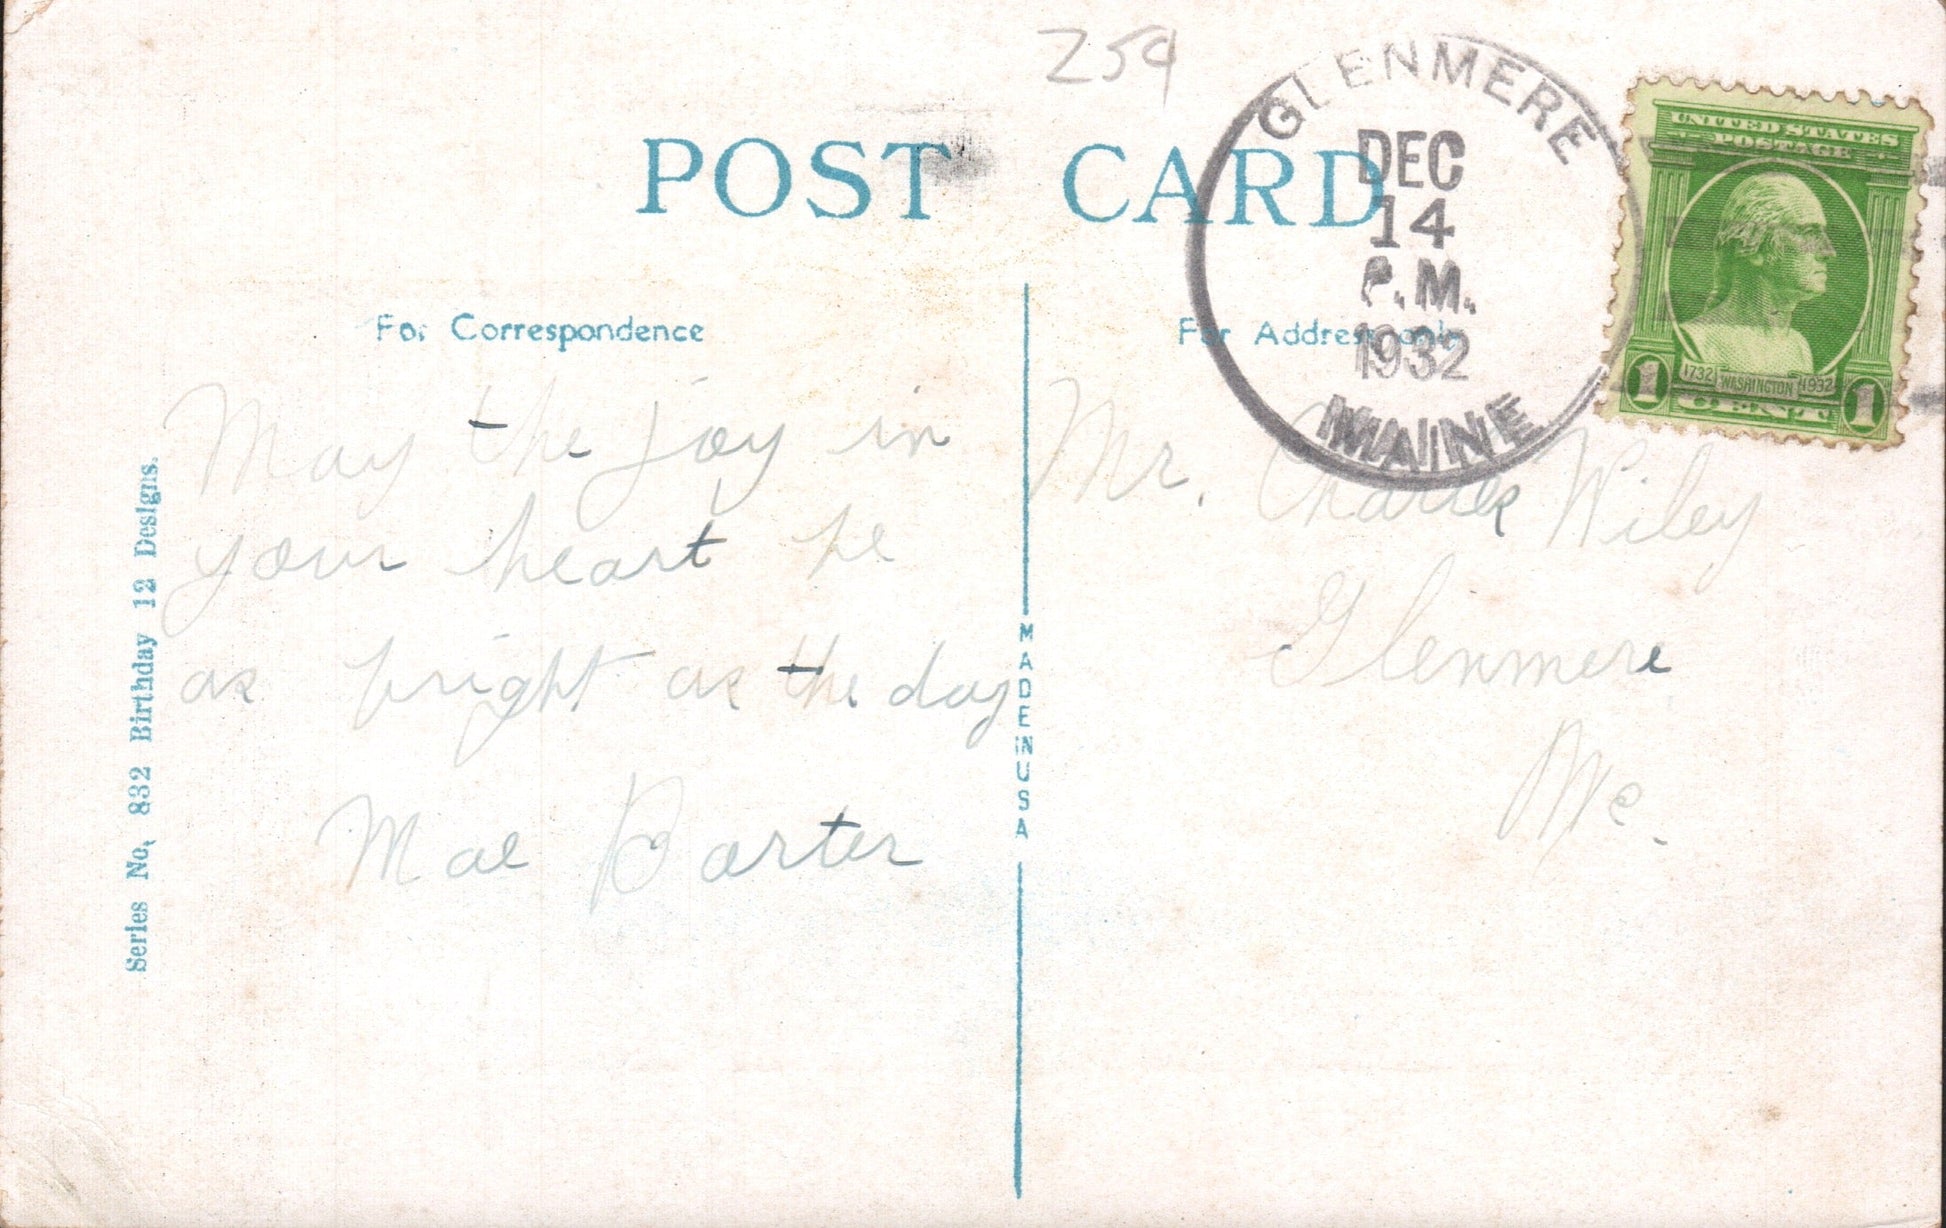 259
POST CARD
GLENMERE
DEC
14
P.M.
1932
MAINE
UNITED STATES
POSTAGE
1732 WASHINGTON 1932
1 CENT 1
For Correspondence
For Address only
May the joy in
your heart be
as bright as the day
Mae Barter
Mr. Charles Wiley
Glenmere
Me.
MADE IN USA
Series No. 832 Birthday 12 Designs.